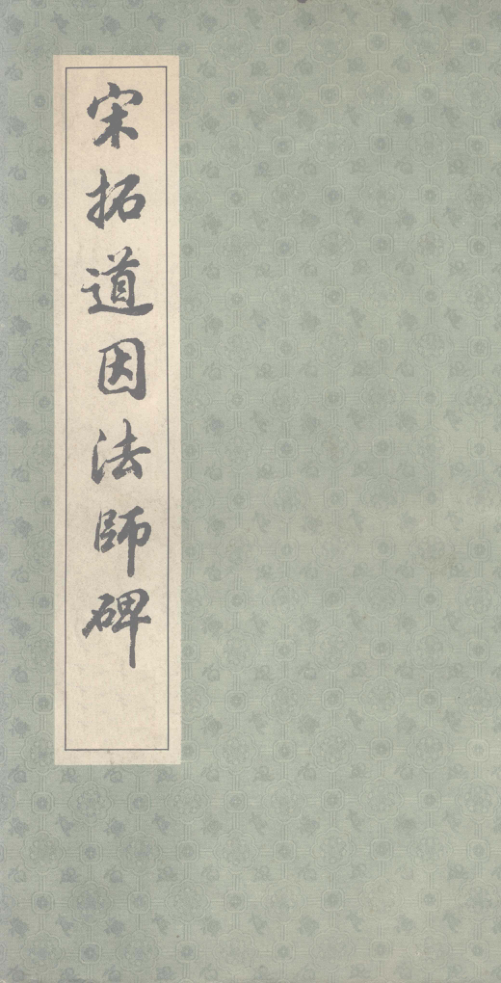 宋拓道因法師碑